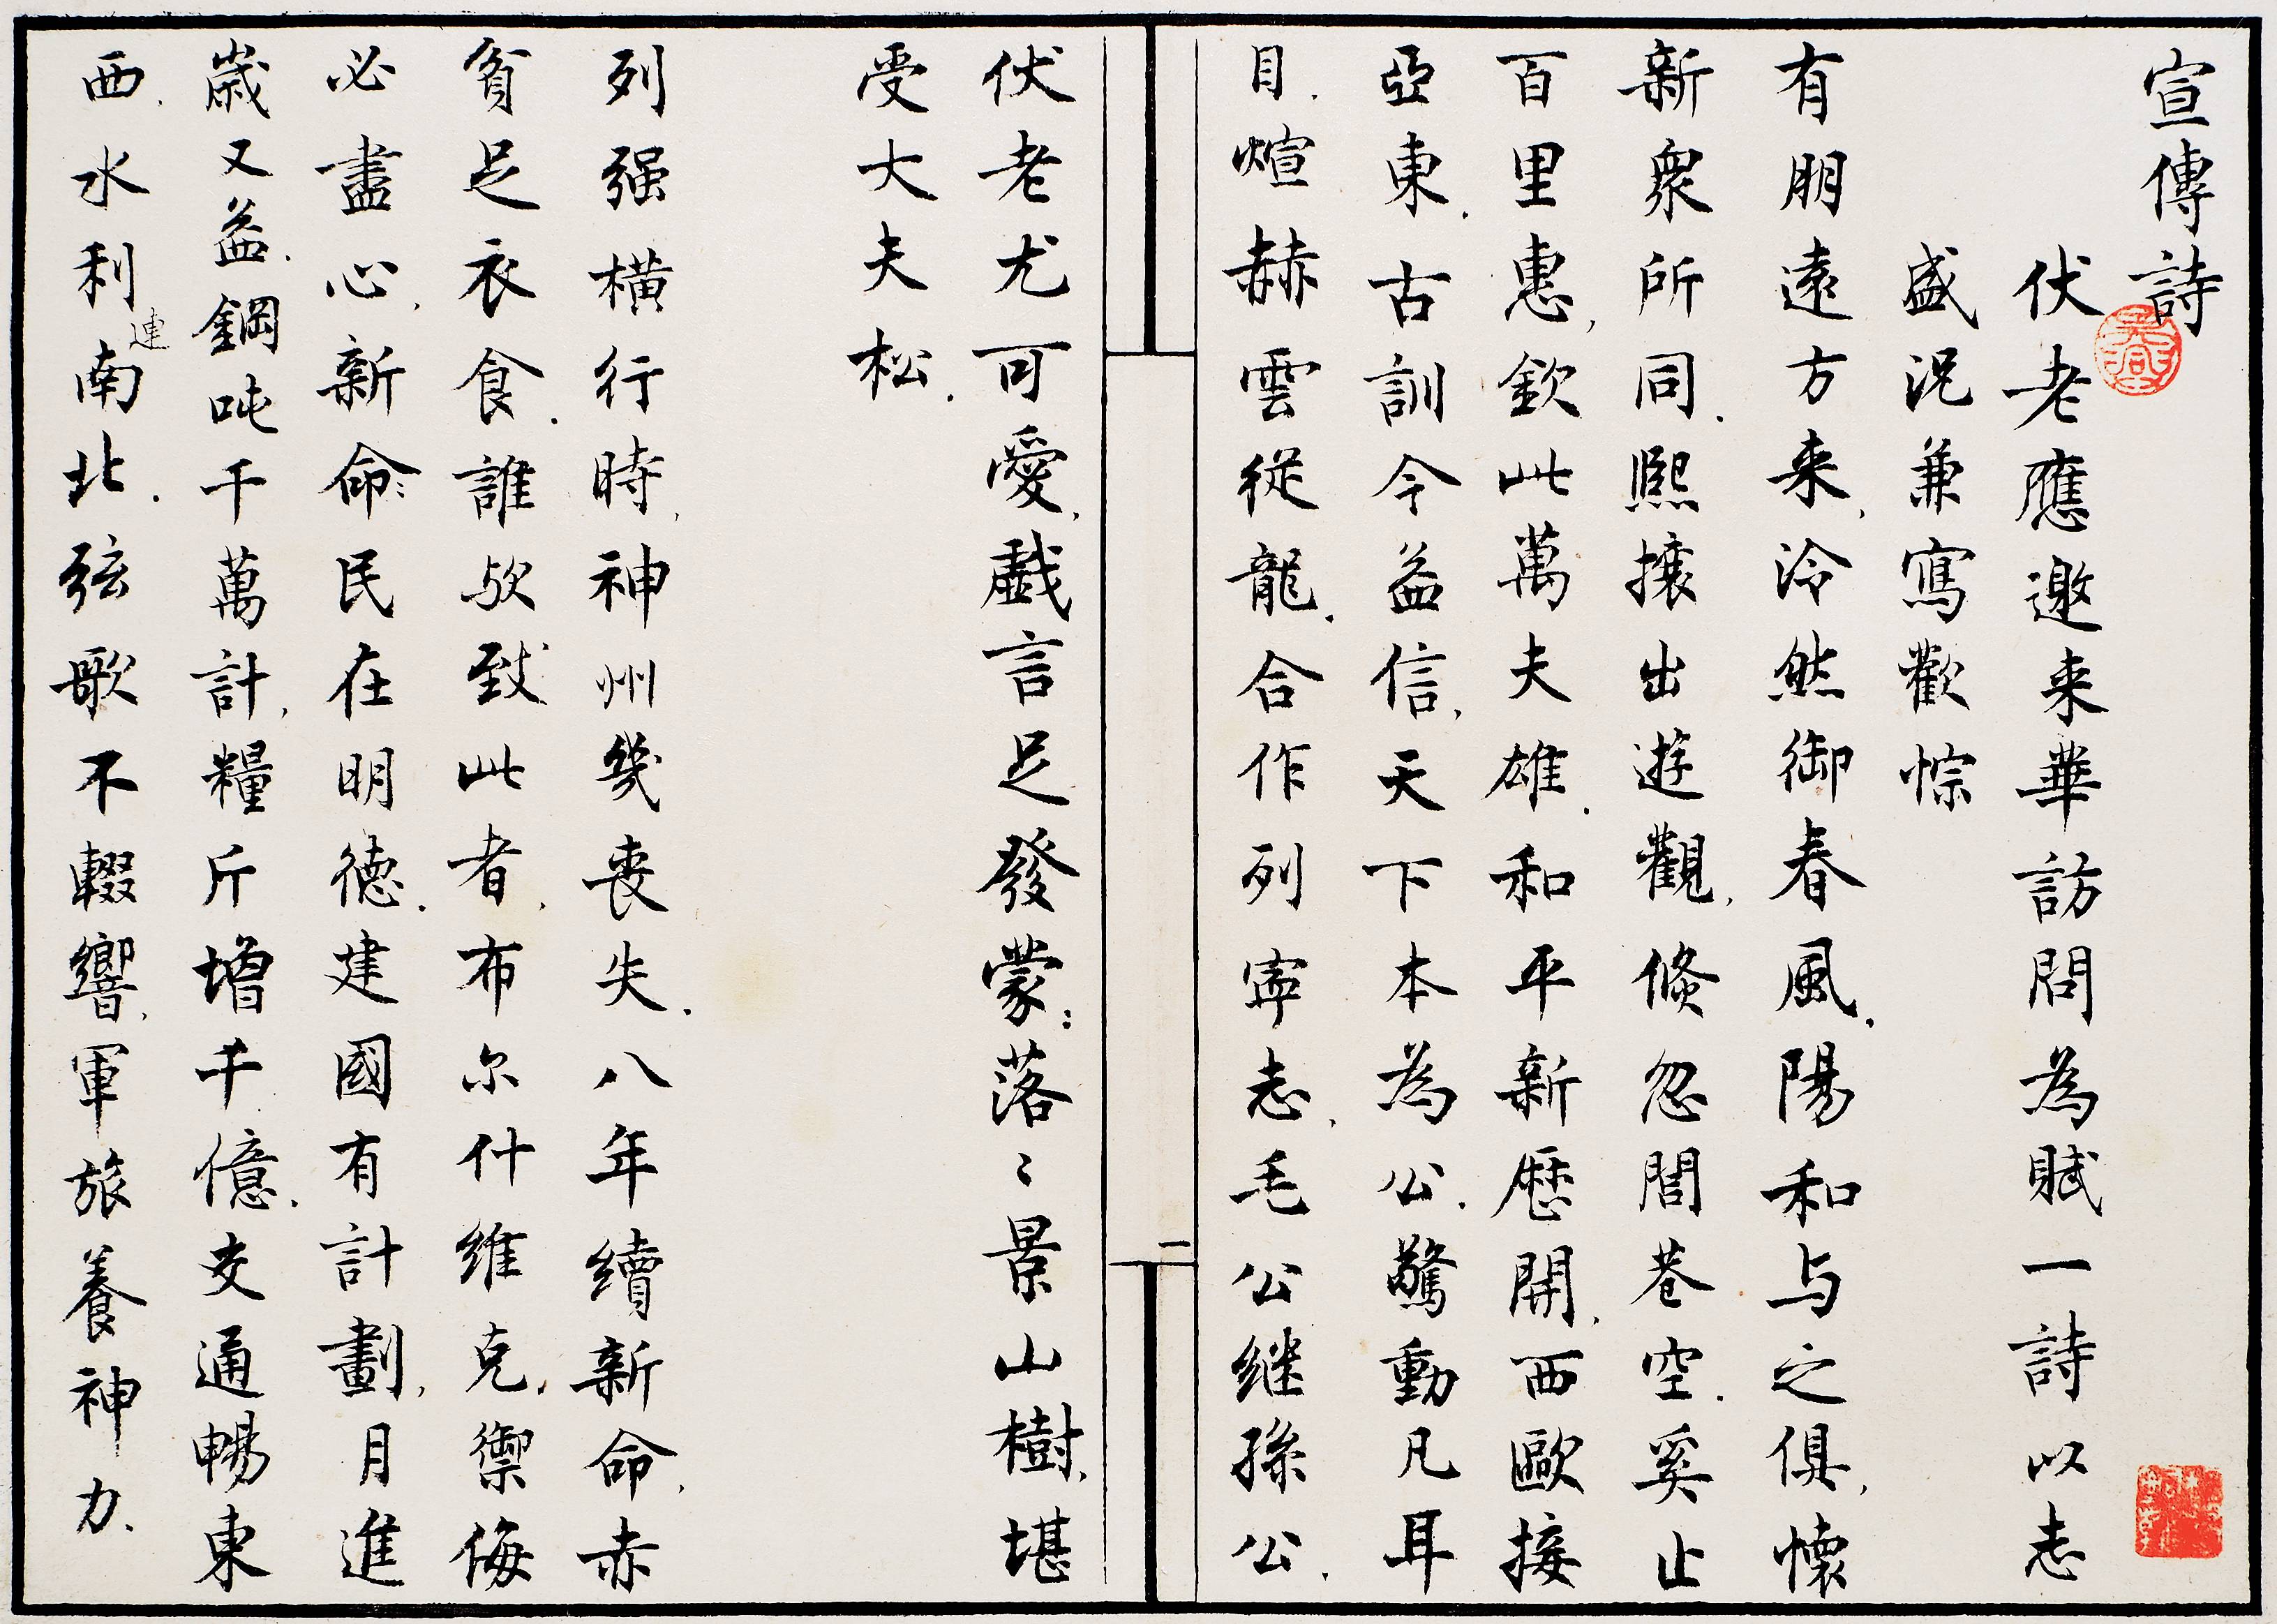 宣傳詩
伏老應邀来華訪問為賦一詩以志
盛況兼寫歡悰
有朋遠方来，泠然御春風．陽和与之俱，懷
新衆所同．熙攘出遊觀，倏忽閭巷空．奚止
百里惠，欽此萬夫雄．和平新歷開，西歐接
亞東．古訓今益信，天下本為公．驚動凡耳
目．煊赫雲從龍．合作列寧志，毛公继孫公．
伏老尤可愛，戲言足發蒙：落〻景山樹，堪
受大夫松．
列强橫行時，神州幾喪失．八年續新命，赤
貧足衣食．誰欤致此者，布尔什維克，禦侮
必盡心，新命：民在明德．建國有計劃，月進
歲又益．鋼吨千萬計，糧斤增千億．交通暢東
西．水利連南北．弦歌不輟響，軍旅養神力．
一